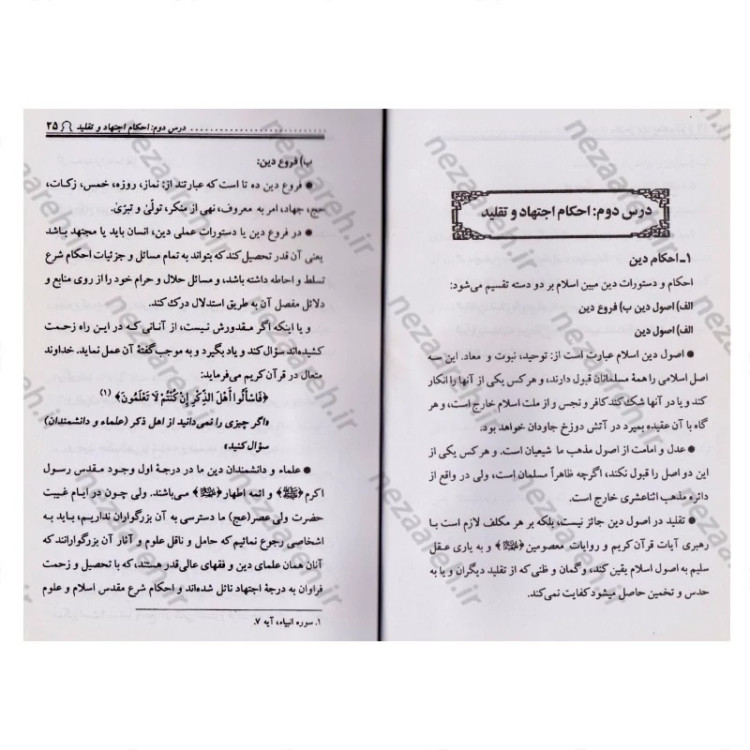 درس دوم: احکام اجتهاد و تقلید
۱ـ احکام دین
احکام و دستورات دین مبین اسلام بر دو دسته تقسیم می‌شود:
الف) اصول دین ب) فروع دین
الف) اصول دین
● اصول دین اسلام عبارت است از: توحید، نبوت و معاد. این سه
اصل اسلامی را همهٔ مسلمانان قبول دارند، و هر کس یکی از آنها را انکار
کند و یا در آنها شک کند کافر و نجس و از ملت اسلام خارج است، و هر
گاه با آن عقیده بمیرد در آتش دوزخ جاودان خواهد بود.
● عدل و امامت از اصول مذهب ما شیعیان است. و هر کس یکی از
این دو اصل را قبول نکند، اگرچه ظاهراً مسلمان است، ولی در واقع از
دائره مذهب اثناعشری خارج است.
● تقلید در اصول دین جائز نیست، بلکه بر هر مکلف لازم است با
رهبری آیات قرآن کریم و روایات معصومین﴿ﷺ﴾ و به یاری عقل
سلیم به اصول اسلام یقین کند، و گمان و ظنی که از تقلید دیگران و یا به
حدس و تخمین حاصل میشود کفایت نمی‌کند.
درس دوم: احکام اجتهاد و تقلید ۲۵
ب) فروع دین:
● فروع دین ده تا است که عبارتند از: نماز، روزه، خمس، زکات،
حج، جهاد، امر به معروف، نهی از منکر، تولّی و تبرّی.
● در فروع دین یا دستورات عملی دین، انسان باید یا مجتهد باشد
یعنی آن قدر تحصیل کند که بتواند به تمام مسائل و جزئیات احکام شرع
تسلط و احاطه داشته باشد، و مسائل حلال و حرام خود را از روی منابع و
دلائل مفصل آن به طریق استدلال درک کند.
و یا اینکه اگر مقدورش نیست، از آنانی که در این راه زحمت
کشیده‌اند سؤال کند و یاد بگیرد و به موجب گفتهٔ آن عمل نماید. خداوند
متعال در قرآن کریم می‌فرماید:
﴿فَاسأَلُوا أَهْلَ الذِّكْرِ إِنْ كُنْتُمْ لَا تَعْلَمُونَ﴾ (۱)
«اگر چیزی را نمی‌دانید از اهل ذکر (علماء و دانشمندان)
سؤال کنید»
● علماء و دانشمندان دین ما در درجهٔ اول وجود مقدس رسول
اکرم﴿ﷺ﴾ و ائمه اطهار﴿ﷺ﴾ می‌باشند. ولی چون در ایام غیبت
حضرت ولی عصر(عج) ما دسترسی به آن بزرگواران نداریم، باید به
اشخاصی رجوع نمائیم که حامل و ناقل علوم و آثار آن بزرگوارانند که
آنان همان علمای دین و فقهای عالی‌قدر هستند، که با تحصیل و زحمت
فراوان به درجهٔ اجتهاد نائل شده‌اند و احکام شرع مقدس اسلام و علوم
۱. سوره انبیاء، آیه ۷.
nezaareh.ir